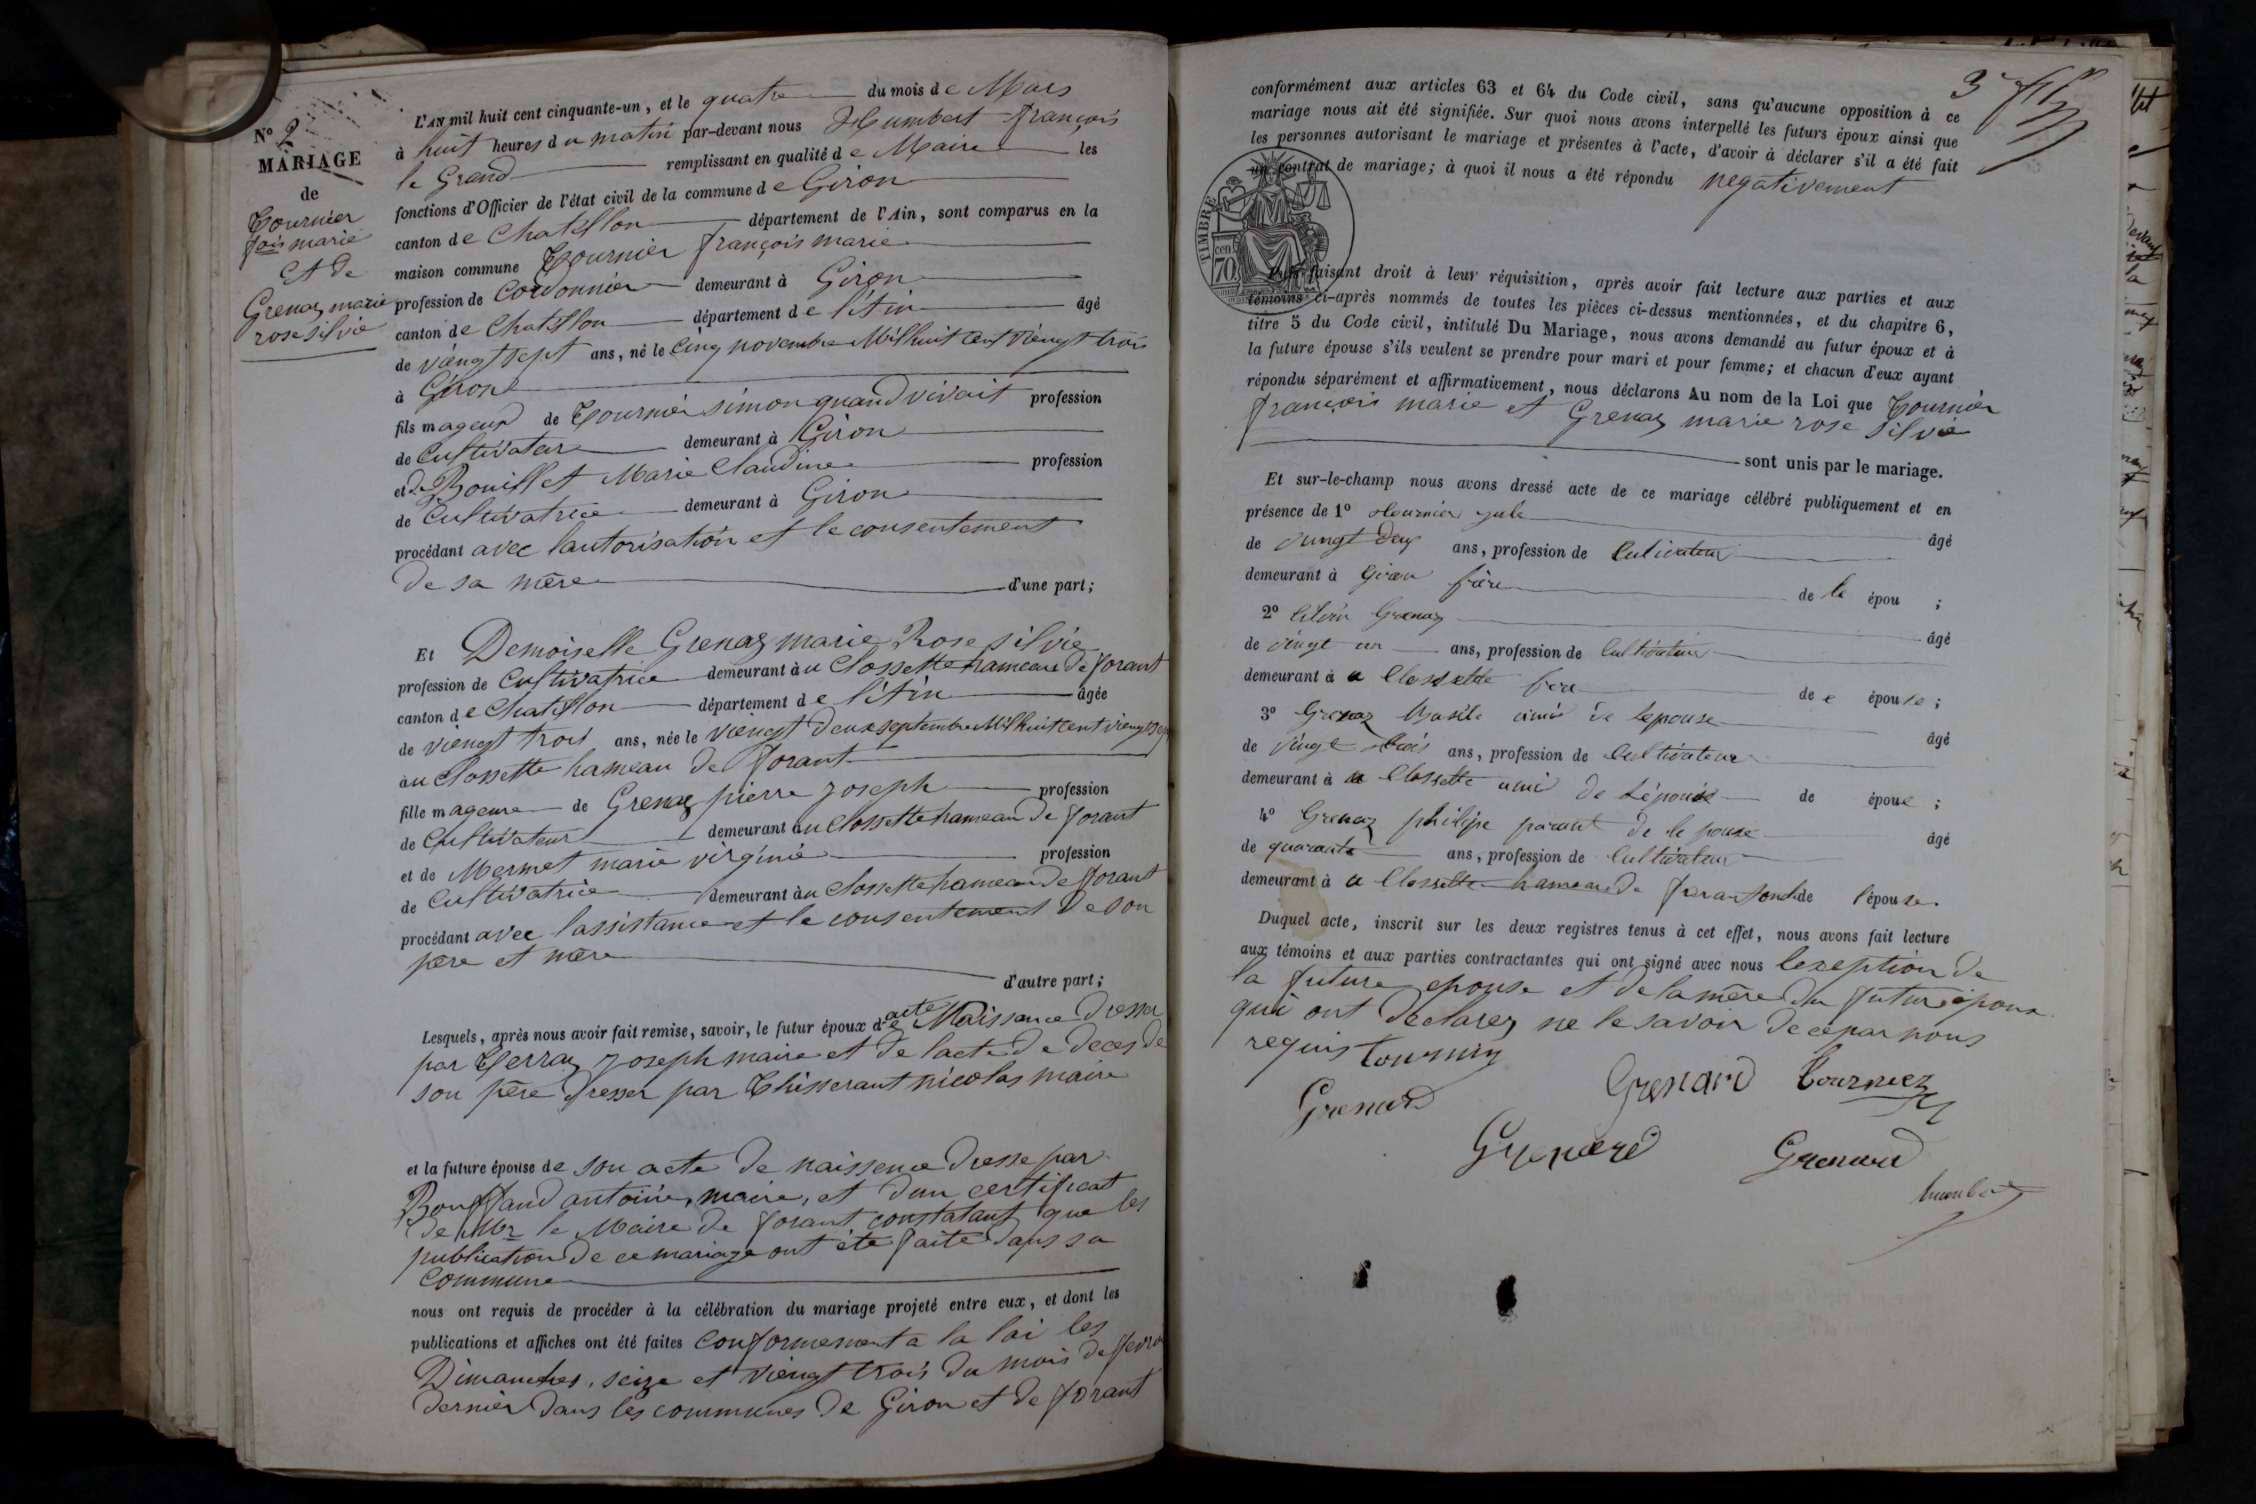 N° 2
MARIAGE
de
Tournier
fois marie
Et de
Grenaz marie
rose silvie
L'AN mil huit cent cinquante-un, et le quatre du mois de Mars
à huit heures du matin par-devant nous Humbert françois
le Grand remplissant en qualité de Maire les
fonctions d'Officier de l'état civil de la commune de Giron
canton de Chatillon département de l'Ain, sont comparus en la
maison commune Tournier françois marie
profession de Cordonnier demeurant à Giron
canton de Chatillon département de l'Ain âgé
de viengt sept ans, né le Cinq novembre Mil huit cent viengt trois
à Giron
fils mageur de Tournier simon quand vivait profession
de Cultivateur demeurant à Giron
et de Bouillet Marie Claudine profession
de Cultivatrice demeurant à Giron
procédant avec lautorisation et le consentement
de sa mère d'une part;
Et Demoiselle Grenaz marie Rose silvie
profession de Cultivatrice demeurant à u Clossette hameau de forant
canton de Chatillon département de l'Ain âgée
de viengt trois ans, née le viengt deux septembre Mil huit cent viengt sept
àu Clossette hameau de forant
fille mageure de Grenaz pierre joseph profession
de Cultivateur demeurant àu Clossette hameau de forant
et de Mermet marie virginie profession
de Cultivatrice demeurant àu Clossette hameau de forant
procédant avec lassistance et le consentement de son
père et mère
d'autre part;
Lesquels, après nous avoir fait remise, savoir, le futur époux de acte Naissance dresser
par joseph maire et de lacte de deces de
son père dresser par Thisserant nicolas maire
et la future épouse de son acte de naissence dresse par
Bouffand antoine, maire, et d'un certificat
de Mr le Maire de forant constatant que les
publication de ce mariage ont été faite dans sa
Commune
nous ont requis de procéder à la célébration du mariage projeté entre eux, et dont les
publications et affiches ont été faites conformement a la loi les
Dimanches, seize et viengt trois du mois de
dernier dans les communes de Giron et de forant
3
conformément aux articles 63 et 64 du Code civil, sans qu'aucune opposition à ce
mariage nous ait été signifiée. Sur quoi nous avons interpellé les futurs époux ainsi que
les personnes autorisant le mariage et présentes à l'acte, d'avoir à déclarer s'il a été fait
un contrat de mariage; à quoi il nous a été répondu negativement
TIMBRE
cen
70
Puis faisant droit à leur réquisition, après avoir fait lecture aux parties et aux
témoins ci-après nommés de toutes les pièces ci-dessus mentionnées, et du chapitre 6,
titre 5 du Code civil, intitulé Du Mariage, nous avons demandé au futur époux et à
la future épouse s'ils veulent se prendre pour mari et pour femme; et chacun d'eux ayant
répondu séparément et affirmativement, nous déclarons Au nom de la Loi que Tournier
françois marie et Grenaz marie rose silvie
sont unis par le mariage.
Et sur-le-champ nous avons dressé acte de ce mariage célébré publiquement et en
présence de 1° tournier jule
âgé
de vingt deux ans, profession de Cultivateur
demeurant à Giron frère de le épou ;
2° Grenaz
âgé
de vingt un ans, profession de Cultivateur
demeurant à u Clossette frere de e épouse ;
3° Grenaz amis de lepouse
âgé
de vingt trois ans, profession de Cultivateur
demeurant à u Clossette ami de de épouse ;
4° Grenaz philipe parant de le pouse
âgé
de quarante ans, profession de Cultivateur
demeurant à u Clossette hameau de de l'épouse.
Duquel acte, inscrit sur les deux registres tenus à cet effet, nous avons fait lecture
aux témoins et aux parties contractantes qui ont signé avec nous lexeption de
la future epouse et de la mère du futur époux
qui ont declarez ne le savoir de ce par nous
requis Tournier
Grenard Tournier
Grenard
Grenard Grenard
humbert